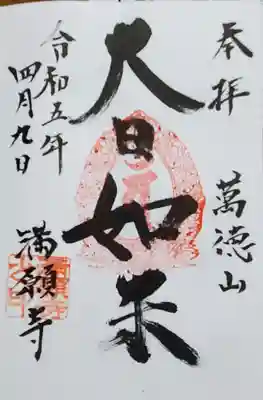 奉拝
萬徳山
大日如来
満願寺
令和五年
四月九日